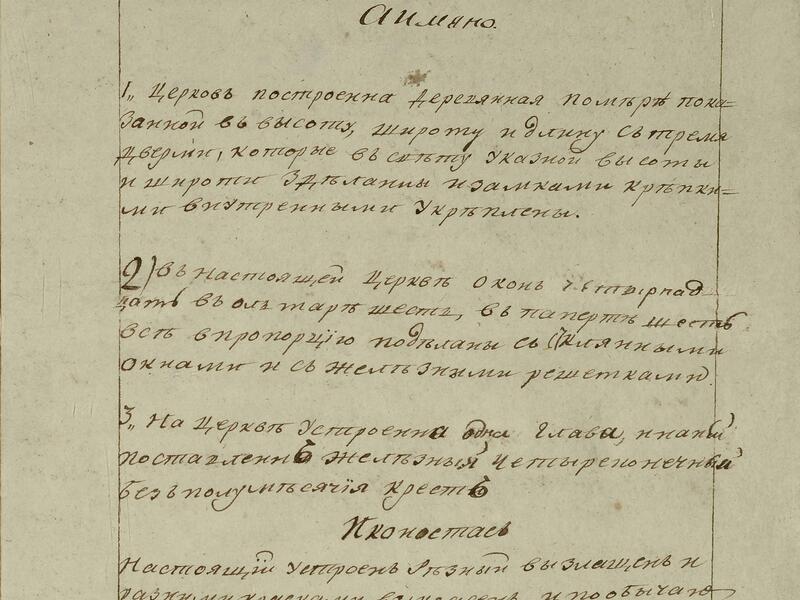 Аимяно.
1„ Церковъ построенна деревянная помѣрѣ пока=
занной въ высоту, широту и длину съ тремя
дверми, которые въ смѣту указной высоты
и широти здѣланы изамками крѣпки=
ми внутренными укрѣплены.
2) въ настоящей церквѣ оконъ четырнад
цать въ ольтарѣ шесть, въ папертѣ шесть
всѣ впропорцію подѣланы съ склянными
окнами и съ желѣзними решетками
3„ На церквѣ устроенна одна глава, инаней
поставленнъ желѣзный четыреконечный
безъ полумѣсячія крестъ
Иконостасъ
Настоящій устроенъ рѣзный вызлащенъ и
разними красками выкрашенъ ипообычаю